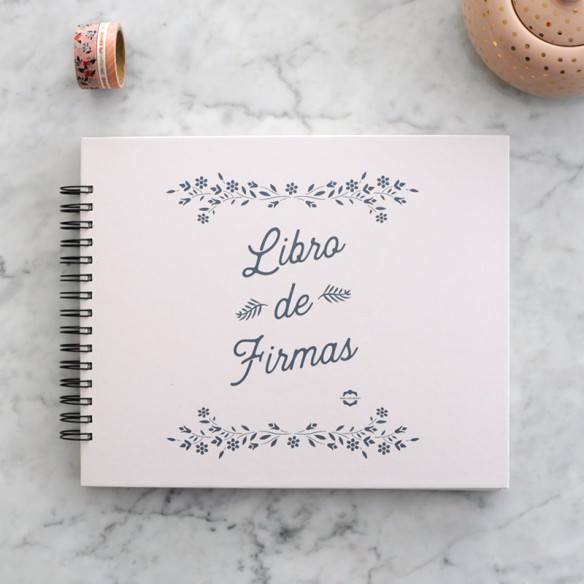 Libro
de
Firmas